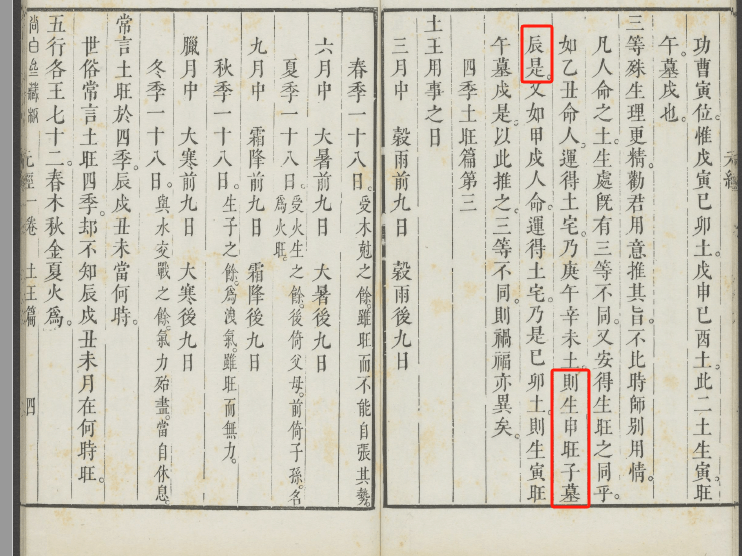 元經
功曹寅位惟戊寅巳卯土戊申巳酉土此二土生寅旺
午墓戌也
三等殊生理更精勸君用意推其旨不比時師别用情
凡人命之土生處旣有三等不同又安得生旺之同乎
如乙丑命人運得土宅乃庚午辛未土則生申旺子墓
辰是又如甲戌人命運得土宅乃是巳卯土則生寅旺
午墓戌是以此推之三等不同則禍福亦異矣
四季土旺篇第三
土王用事之日
三月中 穀雨前九日 穀雨後九日
春季一十八日受木尅之餘雖旺而不能自張其勢
六月中 大暑前九日 大暑後九日
夏季一十八日受火生之餘後倚父母前倚子孫名
爲火旺
九月中 霜降前九日 霜降後九日
秋季一十八日生子之餘爲洩氣雖旺而無力
臘月中 大寒前九日 大寒後九日
冬季一十八日與水交戰之餘氣力殆盡當自休息
常言土旺於四季辰戌丑未當何時
世俗常言土旺四季却不知辰戌丑未月在何時旺
五行各王七十二春木秋金夏火爲
尙白齋藏板 元經一卷 土王篇 四